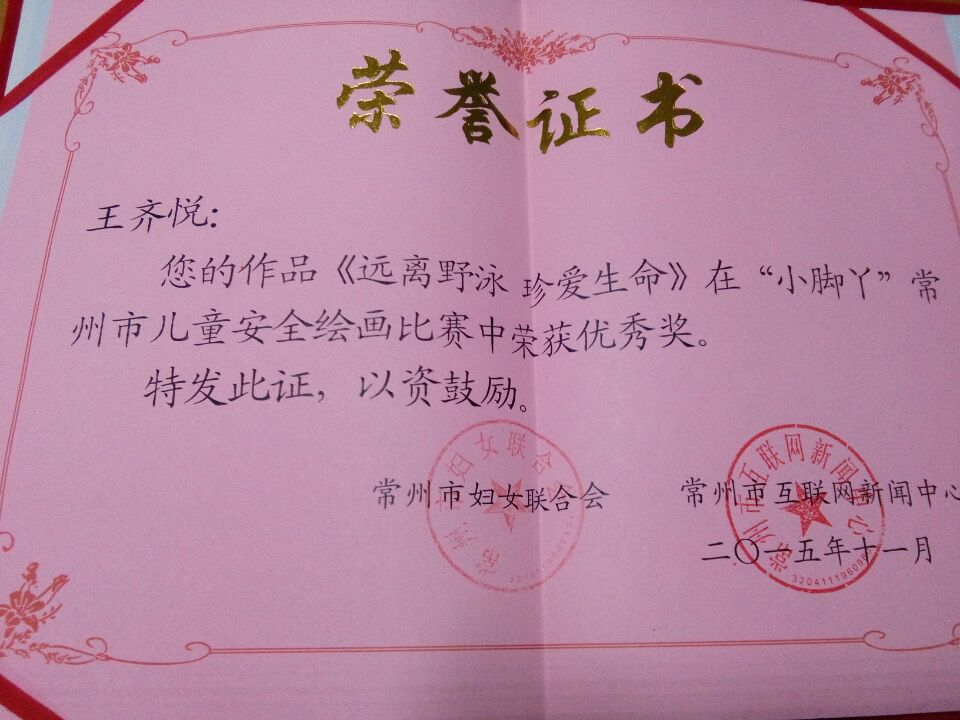 荣誉证书
王齐悦：
您的作品《远离野泳 珍爱生命》在“小脚丫”常
州市儿童安全绘画比赛中荣获优秀奖。
特发此证，以资鼓励。
常州市妇女联合会 常州市互联网新闻中心
二〇一五年十一月
常州市妇女联合会
常州市互联网新闻中心